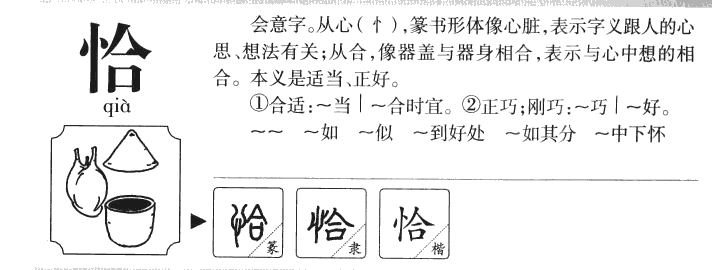 恰
qià
会意字。从心(忄),篆书形体像心脏,表示字义跟人的心
思、想法有关;从合,像器盖与器身相合,表示与心中想的相
合。本义是适当、正好。
①合适:～当｜～合时宜。②正巧;刚巧:～巧｜～好。
～～ ～如 ～似 ～到好处 ～如其分 ～中下怀
恰 篆
恰 隶
恰 楷